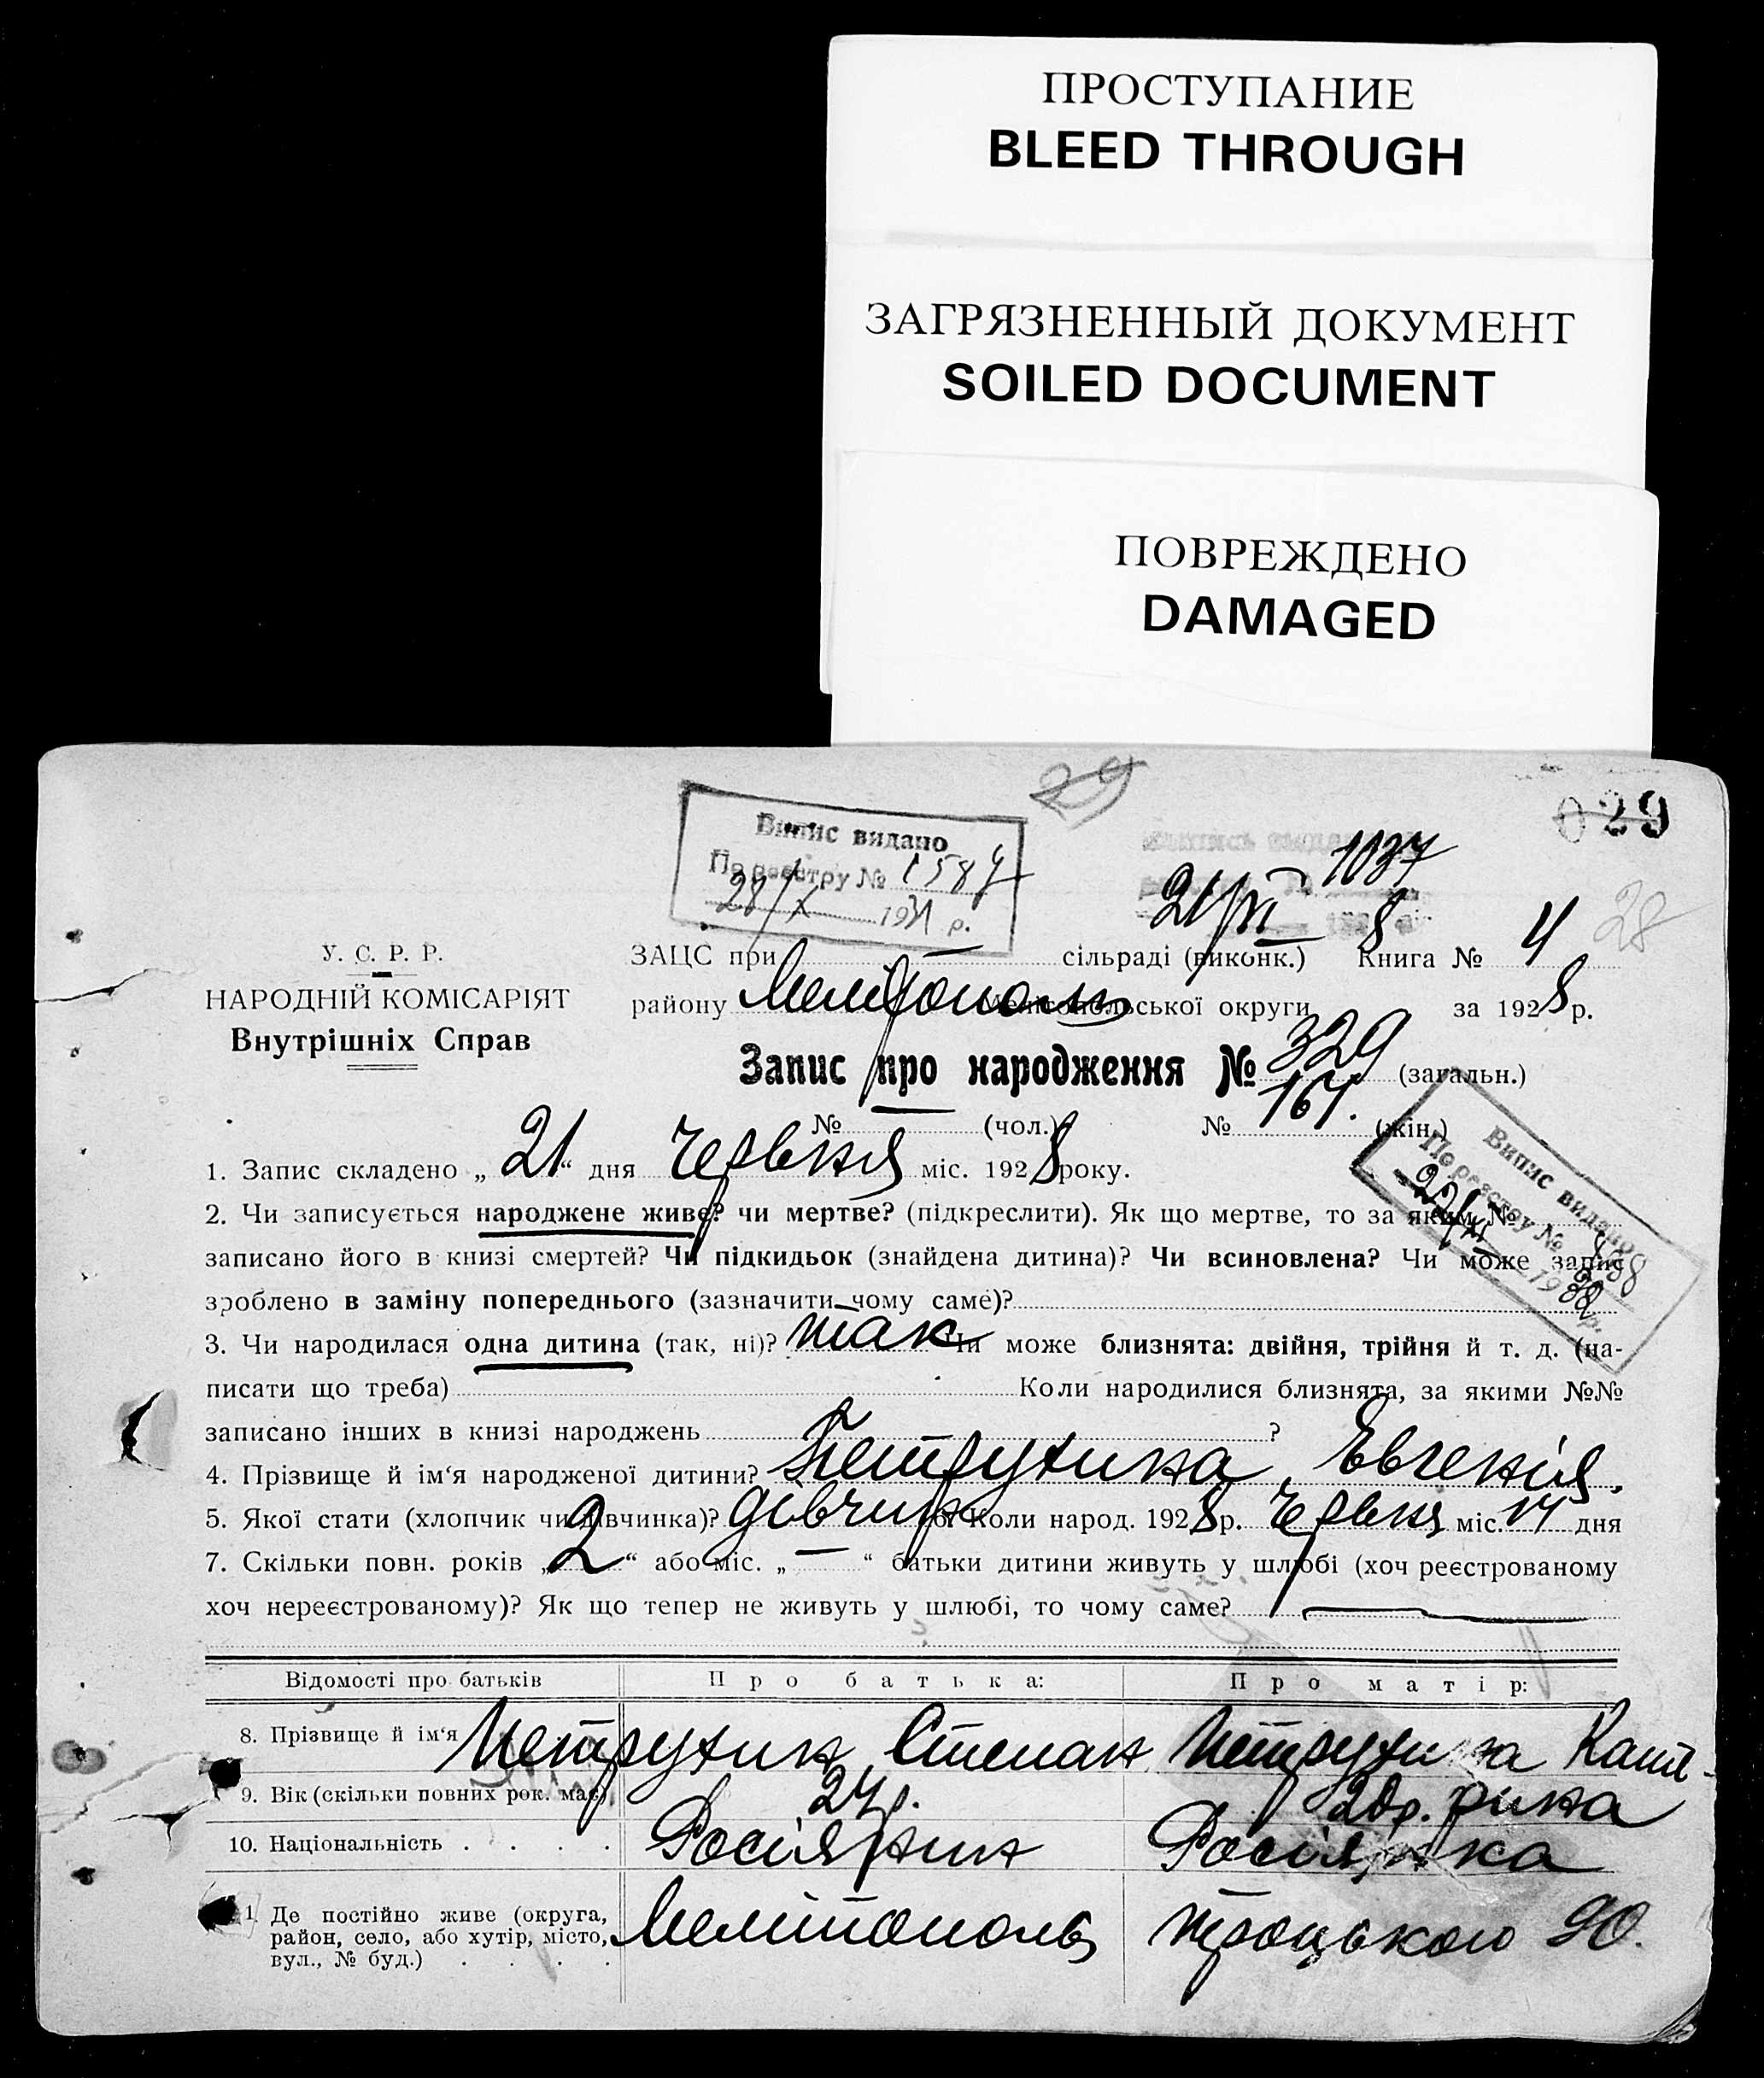 ПРОСТУПАНИЕ
BLEED THROUGH
ЗАГРЯЗНЕННЫЙ ДОКУМЕНТ
SOILED DOCUMENT
ПОВРЕЖДЕНО
DAMAGED
29
029
Випис видано
По реєстру № 1584
28/X 1931 р.
1037
21/VI 8
28
У. С. Р. Р.
НАРОДНІЙ КОМІСАРІЯТ
Внутрішніх Справ
ЗАЦС при — сільраді (виконк.) Книга № 4
району Мелітополь Мелітопольської округи за 1928 р.
Запис про народження № 329 (загальн.)
№ — (чол.) № 161. (жін.)
Випис видано
По реєстру №
1932 р.
1. Запис складено „21“ дня червня міс. 1928 року.
2. Чи записується народжене живе? чи мертве? (підкреслити). Як що мертве, то за яким №
записано його в книзі смертей? Чи підкидьок (знайдена дитина)? Чи всиновлена? Чи може запис
зроблено в заміну попереднього (зазначити чому саме)?
3. Чи народилася одна дитина (так, ні)? так Чи може близнята: двійня, трійня й т. д. (на-
писати що треба) Коли народилися близнята, за якими №№
записано інших в книзі народжень ?
4. Прізвище й ім'я народженої дитини? Петрухина, Евгенія.
5. Якої стати (хлопчик чи дівчинка)? дівчинка 6. Коли народ. 1928 р. червня міс. 17 дня
7. Скільки повн. років „2“ або міс. „—“ батьки дитини живуть у шлюбі (хоч реєстрованому
хоч нереєстрованому)? Як що тепер не живуть у шлюбі, то чому саме? —
Відомості про батьків Про батька: Про матір:
8. Прізвище й ім'я Петрухин Степан Петрухина Кате-
9. Вік (скільки повних рок. має) 24 р. 20 р. рина
10. Національність . . . . Росіянин Росіянка
11 Де постійно живе (округа, район, село, або хутір, місто, вул., № буд.) . . . . Мелітополь Троцького 90.